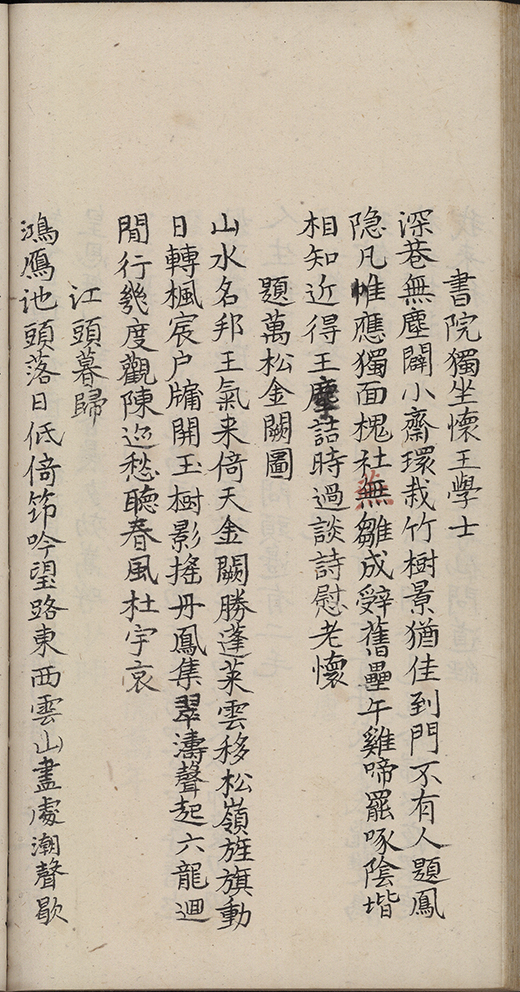 書院獨坐懷王學士
深巷無塵闢小齋環栽竹樹景猶佳到門不有人題鳳
隐凡惟應獨面槐社燕雛成辤舊壘午雞啼罷啄陰堦
相知近得王摩詰時過談詩慰老懷
題萬松金闕圖
山水名邦王氣来倚天金闕勝蓬萊雲移松嶺旌旗動
日轉楓宸户牖開玉樹影搖丹鳳集翠濤聲起六龍迴
閒行幾度觀陳迹愁聽春風杜宇哀
江頭暮歸
鴻鴈池頭落日低倚筇吟望路東西雲山盡處潮聲歇